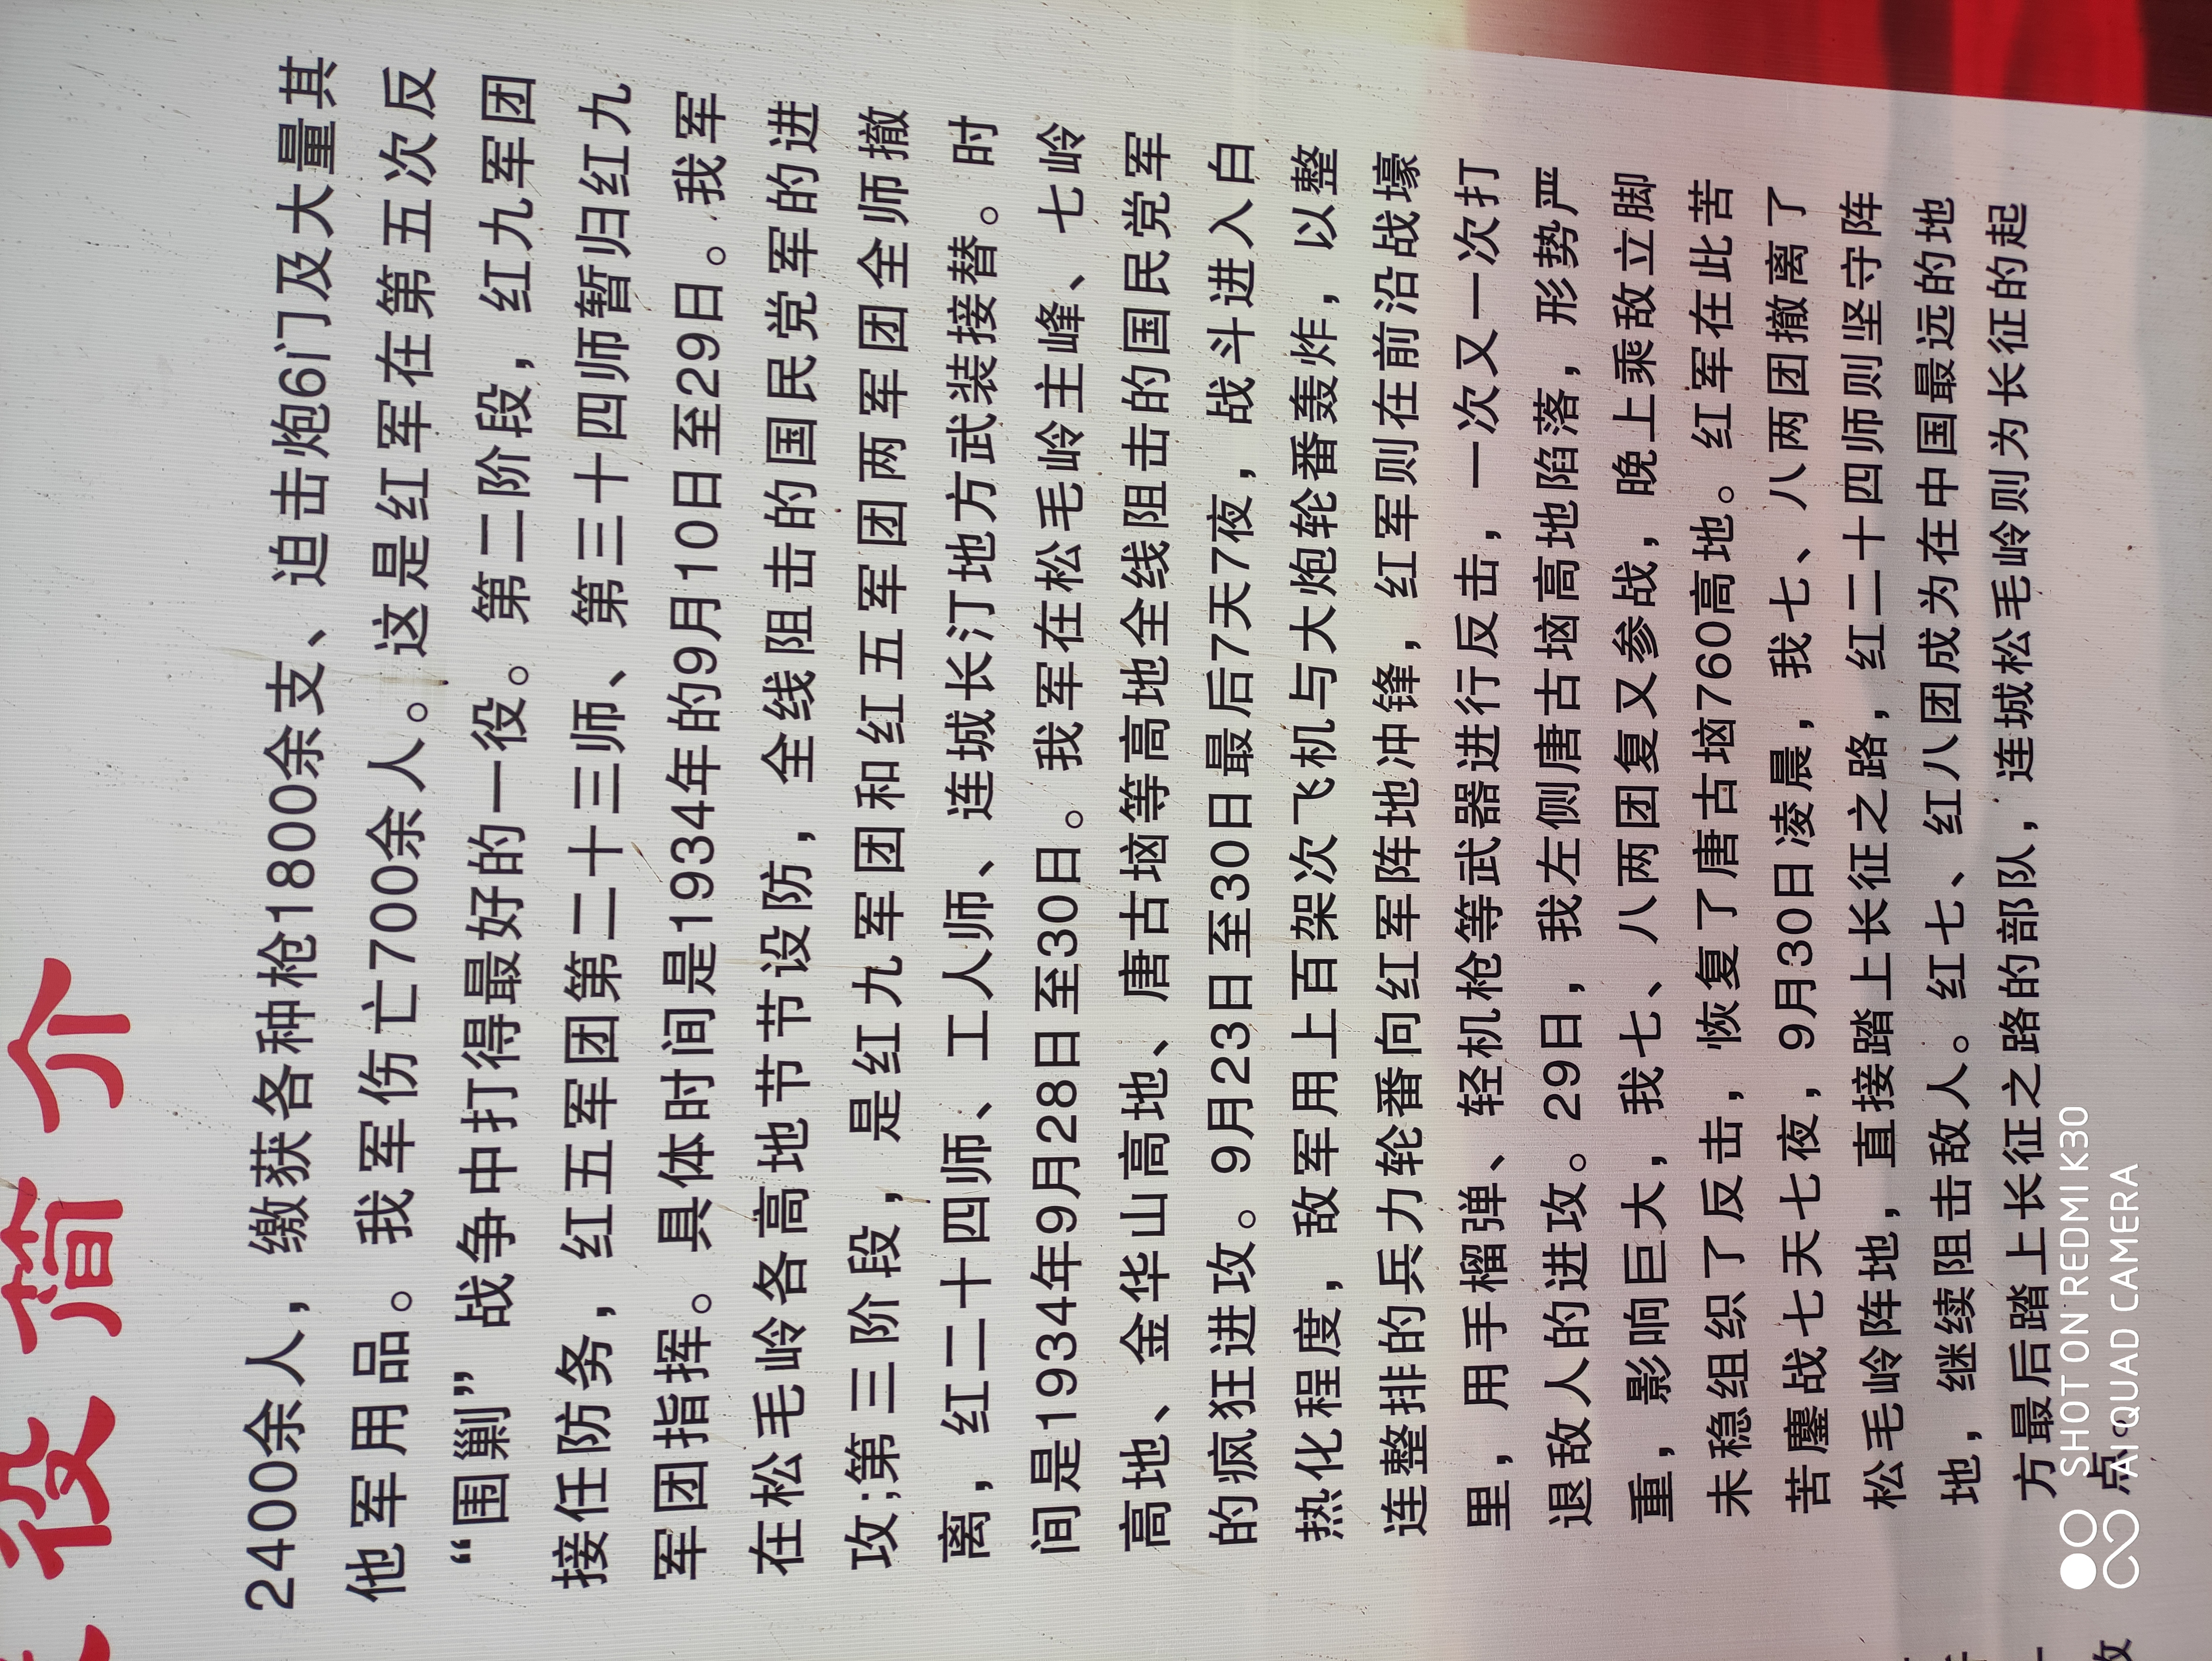 役简介
2400余人，缴获各种枪1800余支、迫击炮6门及大量其
他军用品。我军伤亡700余人。这是红军在第五次反
“围剿”战争中打得最好的一役。第二阶段，红九军团
接任防务，红五军团第二十三师、第三十四师暂归红九
军团指挥。具体时间是1934年的9月10日至29日。我军
在松毛岭各高地节节设防，全线阻击的国民党军的进
攻;第三阶段，是红九军团和红五军团两军团全师撤
离，红二十四师、工人师、连城长汀地方武装接替。时
间是1934年9月28日至30日。我军在松毛岭主峰、七岭
高地、金华山高地、唐古垴等高地全线阻击的国民党军
的疯狂进攻。9月23日至30日最后7天7夜，战斗进入白
热化程度，敌军用上百架次飞机与大炮轮番轰炸，以整
连整排的兵力轮番向红军阵地冲锋，红军则在前沿战壕
里，用手榴弹、轻机枪等武器进行反击，一次又一次打
退敌人的进攻。29日，我左侧唐古垴高地陷落，形势严
重，影响巨大，我七、八两团复又参战，晚上乘敌立脚
未稳组织了反击，恢复了唐古垴760高地。红军在此苦
苦鏖战七天七夜，9月30日凌晨，我七、八两团撤离了
松毛岭阵地，直接踏上长征之路，红二十四师则坚守阵
地，继续阻击敌人。红七、红八团成为在中国最远的地
方最后踏上长征之路的部队，连城松毛岭则为长征的起
点。
SHOT ON REDMI K30
AI QUAD CAMERA